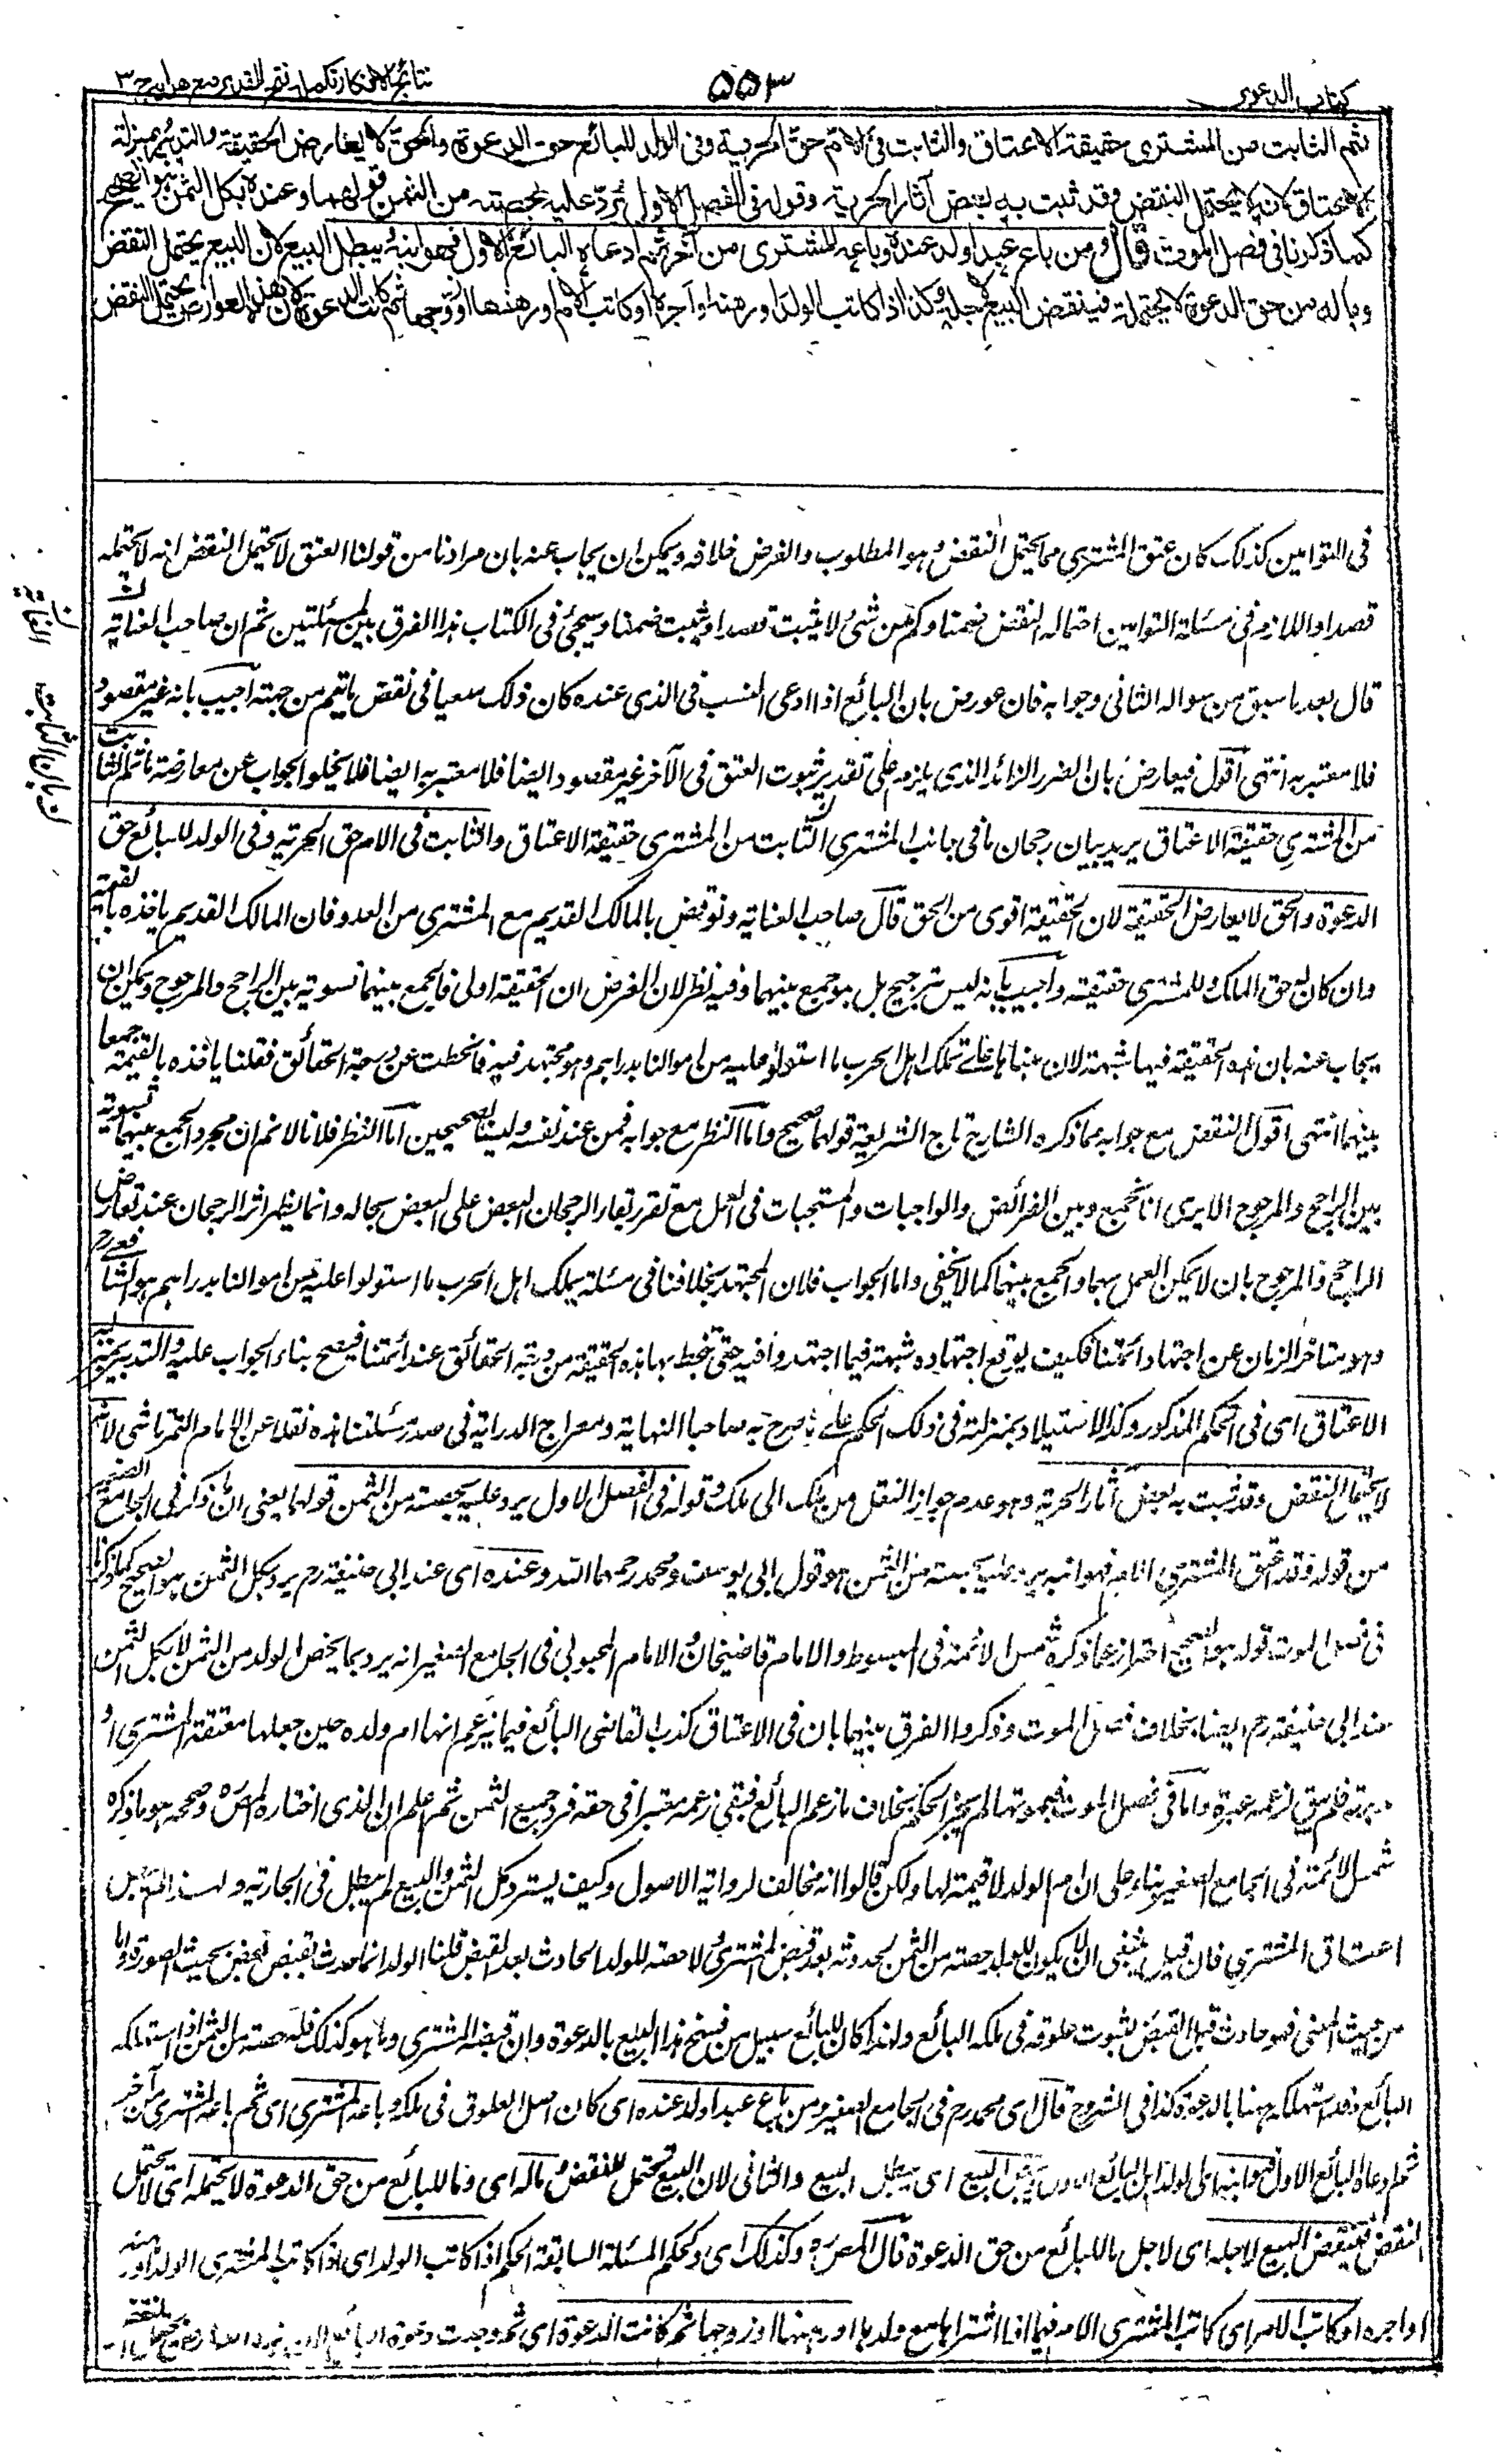 كتاب الدعوى
٥٥٣
نتائج الافكار تكملة فتح القدير مع هدايه ج ٣
ثم الثابت من المشترى حقيقة الاعتاق والثابت فى الام حق الحرية وفى الولد للبائع حق الدعوة والحق لا يعارض الحقيقة والتدبير بمنزلة
الاعتاق لانه لا يحتمل النقض وقد ثبت به بعض آثار الحرية وقوله فى الفصل الاول يرد عليه بحصته من الثمن قولهما وعنده بكل الثمن هو الصحيح
كما ذكرنا فى فصل الموت قال ومن باع عبدا ولد عنده وباعه المشترى من آخر ثم ادعاه البائع الاول فهو ابنه يبطل البيع لان البيع يحتمل النقض
وما له من حق الدعوة لا يحتمله فينقض البيع لاجله وكذا اذا كاتب الولد او رهنه او آجره او كاتب الام او رهنها او زوجها ثم كانت الدعوة لان هذه العوارض تحتمل النقض
فى التوامين كذلك كان عتق المشترى مما يحتمل النقض وهو المطلوب والفرض خلافه ويمكن ان يجاب عنه بان مرادنا من قولنا العتق لا يحتمل النقض انه لا يحتمله
قصدا واللازم فى مسئلة التوامين احتماله النقض ضمنا وكم من شئ لا يثبت قصدا ويثبت ضمنا وسيجئ فى الكتاب هذا الفرق بين المسئلتين ثم ان صاحب العناية
قال بعد ما سبق من سواله الثانى وجوابه فان عورض بان البائع اذا ادعى النسب فى الذى عنده كان ذلك سعيا فى نقض ما تم من جهته اجيب بانه غير مقصود
فلا معتبر به انتهى اقول فيعارض بان الضرر الزائد الذى يلزمه على تقدير ثبوت العتق فى الآخر غير مقصود ايضا فلا معتبر به ايضا فلا يخلو الجواب عن معارضة ما ثم الثابت
من المشترى حقيقة الاعتاق يريد بيان رجحان ما فى جانب المشترى ان الثابت من المشترى حقيقة الاعتاق والثابت فى الام حق الحرية وفى الولد للبائع حق
الدعوة والحق لا يعارض الحقيقة لان الحقيقة اقوى من الحق قال صاحب العناية ونوقض بالمالك القديم مع المشترى من العدو فان المالك القديم ياخذه بالقيمة
وان كان له حق الملك وللمشترى حقيقته واجيب بانه ليس ترجيح بل هو جمع بينهما وفيه نظر لان الفرض ان الحقيقة اولى فالجمع بينهما تسوية بين الراجح والمرجوح ويمكن ان
يجاب عنه بان هذه الحقيقة فيها شبهة لان مبناها على تملك اهل الحرب ما استولوا عليه من اموالنا بدراهم وهو مجتهد فيه فانحطت عن درجة الحقائق فقلنا ياخذه بالقيمة جمعا
بينهما انتهى اقول النقض مع جوابه مما ذكره الشارح تاج الشريعة قولهما صحيح واما النظر مع جوابه فمن عند نفسه وليسا بصحيحين اما النظر فلانا لا نم ان مجرد الجمع بينهما تسوية
بين الراجح والمرجوح الا يرى انا نجمع بين الفرائض والواجبات والمستحبات فى العمل مع تقرر بقاء الرجحان للبعض على البعض بحاله وانما يظهر اثر الرجحان عند تعارض
الراجح والمرجوح بان لا يمكن العمل بهما والجمع بينهما كما لا يخفى واما الجواب فلان المجتهد بخلافنا فى مسئلة يملك اهل الحرب ما استولوا عليه من اموالنا بدراهم هو الشافعى رح
وهو متاخر الزمان عن اجتهاد ائمتنا فكيف يوقع اجتهاده شبهة فيما اجتهدوا فيه حتى تنحط بها هذه الحقيقة من رتبة الحقائق عند ائمتنا فيصح بناء الجواب عليه والتدبير بمنزلة
الاعتاق اى فى الحكم المذكور وكذا الاستيلاد بمنزلته فى ذلك الحكم على ما صرح به صاحبا النهاية ومعراج الدراية فى صدر مسئلتنا هذه نقلا عن الامام التمرتاشى لانه
لا يحتمل النقض وقد ثبت به بعض آثار الحرية وهو عدم جواز النقل من ملك الى ملك وقوله فى الفصل الاول يرد عليه بحصته من الثمن قولهما يعنى ان ما ذكر فى الجامع الصغير
من قوله وقد اعتق المشترى الام فهو ابنه يرد عليه بحصته من الثمن هو قول ابى يوسف ومحمد رحمهما الله وعنده اى عند ابى حنيفة رح يرد بكل الثمن هو الصحيح كما ذكرنا
فى فصل الموت قوله هو الصحيح احتراز عما ذكره شمس الائمة فى المبسوط والامام قاضيخان والامام المحبوبى فى الجامع الصغير انه يرد بما يخص الولد من الثمن لا بكل الثمن
عند ابى حنيفة رح ايضا بخلاف فصل الموت وذكروا الفرق بينهما بان فى الاعتاق كذب القاضى البائع فيما زعم انها ام ولده حين جعلها معتقة المشترى او
مدبرته فلم يبق لزعمه عبرة واما فى فصل الموت فبموتها لم يجر الحكم بخلاف ما زعم البائع فبقى زعمه معتبرا فى حقه فرد جميع الثمن ثم اعلم ان الذى اختاره المص ره وصححه هو ما ذكره
شمس الائمة فى الجامع الصغير بناء على ان ام الولد لا قيمة لها ولكن قالوا انه مخالف لرواية الاصول وكيف يسترد كل الثمن والبيع لم يبطل فى الجارية ولهذا لم يبطل
اعتاق المشترى فان قيل ينبغى ان لا يكون للولد حصة من الثمن لحدوثه بعد قبض المشترى ولا حصة للولد الحادث بعد القبض قلنا الولد انما حدث بعد القبض من حيث الصورة واما
من حيث المعنى فهو حادث قبل القبض لثبوت علوقه فى ملك البائع ولهذا كان للبائع سبيل من فسخ هذا البيع بالدعوة وان قبضه المشترى وما هو كذلك فله حصة من الثمن اذا استهلكه
البائع وقد استهلكه ههنا بالدعوة كذا فى الشروح قال اى محمد رح فى الجامع الصغير ومن باع عبدا ولد عنده اى كان اصل العلوق فى ملكه وباعه المشترى اى ثم باعه المشترى من آخر
ثم ادعاه البائع الاول فهو ابنه اى الولد ابن البائع الاول ويبطل البيع اى يبطل البيع والثانى لان البيع يحتمل النقض وماله اى وما للبائع من حق الدعوة لا يحتمله اى لا يحتمل
النقض فينقض البيع لاجله اى لاجل ما للبائع من حق الدعوة قال المص ره وكذلك اى وكحكم المسئلة السابقة الحكم اذا كاتب الولد اى اذا كاتب المشترى الولد او رهنه
او اجره او كاتب الام اى كاتب المشترى الام فيما اذا اشتراها مع ولدها او رهنها او زوجها ثم كانت الدعوة اى ثم وجدت دعوة البائع